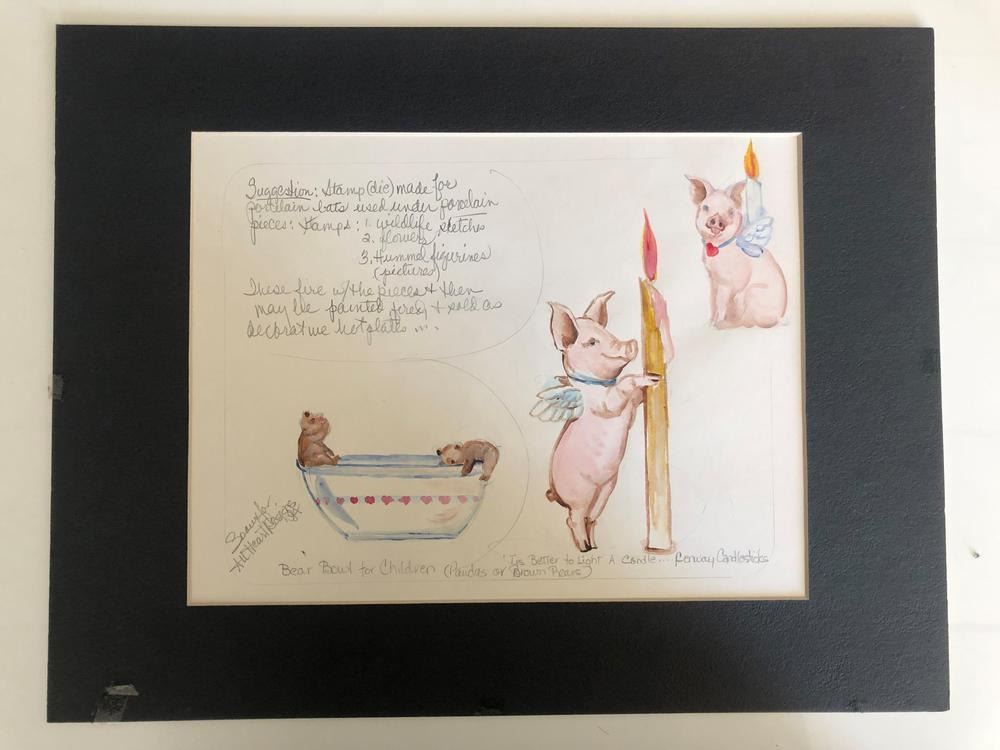 Suggestion: Stamp (die) made for
porcelain bats used under porcelain
pieces: Stamps: 1. wildlife sketches
2. flowers
3. Hummel figurines
(pictures)
These fire w/the pieces & then
may be painted, fired, & sold as
decorative hotplates ....
for
Art Heart Designs
Bear Bowl for Children (Pandas or Brown Bears)
'Tis Better to Light A Candle.... Candlesticks